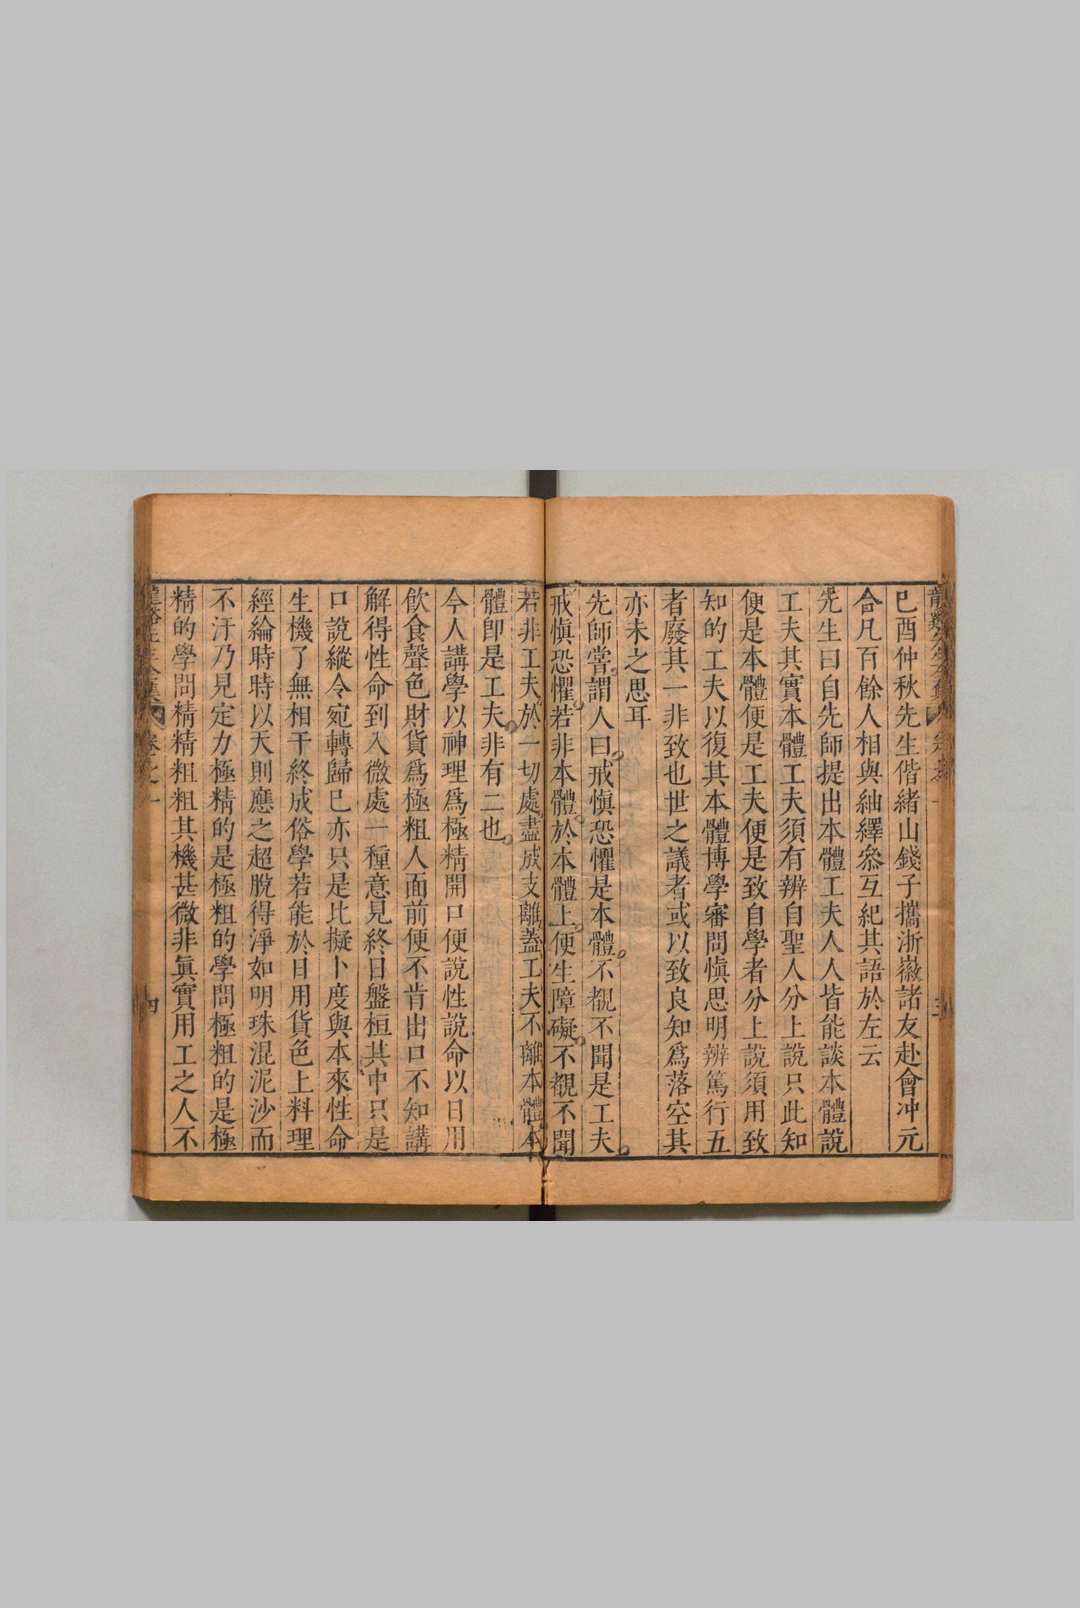 己酉仲秋先生偕緒山錢子攜浙徽諸友赴會冲元
合凡百餘人相與紬繹叅互紀其語於左云
先生曰自先師提出本體工夫人人皆能談本體說
工夫其實本體工夫須有辨自聖人分上說只此知
便是本體便是工夫便是致自學者分上說須用致
知的工夫以復其本體博學審問慎思明辨篤行五
者廢其一非致也世之議者或以致良知爲落空其
亦未之思耳
先師嘗謂人曰戒慎恐懼是本體不覩不聞是工夫
戒慎恐懼若非本體於本體上便生障礙不覩不聞
若非工夫於一切處盡成支離蓋工夫不離本體本
體即是工夫非有二也
今人講學以神理爲極精開口便說性說命以日用
飲食聲色財貨爲極粗人面前便不肯出口不知講
解得性命到入微處一種意見終日盤桓其中只是
口說縱令宛轉歸已亦只是比擬卜度與本來性命
生機了無相干終成俗學若能於日用貨色上料理
經綸時時以天則應之超脫得淨如明珠混泥沙而
不汙乃見定力極精的是極粗的學問極粗的是極
精的學問精精粗粗其機甚微非真實用工之人不
四